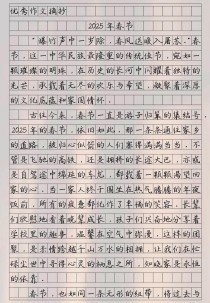 优秀作文摘抄
2025年春节
“爆竹声中一岁除，春风送暖入屠苏。”春
节，这一中华民族最隆重的传统佳节，宛如一
颗璀璨的明珠，在历史的长河中闪耀着独特的
光芒，承载着无尽的欢乐与希望，凝聚着深厚
的文化底蕴和家国情怀。
古往今来，春节一直是游子归巢的集结号。
2025年的春节，依旧如此，那一条条通往家乡
的道路，被归心似箭的人们塞得满满当当，不
管是飞驰的高铁，还是拥挤的长途大巴，亦或
是自驾途中绵延的车龙，都载着一颗颗渴望回
家的心。当一家人终于围坐在热气腾腾的年夜
饭前，所有的疲惫都化作了幸福的笑容，长辈
们欣慰地看着晚辈成长，孩子们兴奋地分享着
学校里的趣事，温馨在空气中弥漫，这样的团
聚，是亲情跨越千山万水的相拥，让我们在忙
碌尘世中寻得心灵的栖息之所，知晓家是永恒
的依靠。
春节，也如同一条无形的红带，将过去与